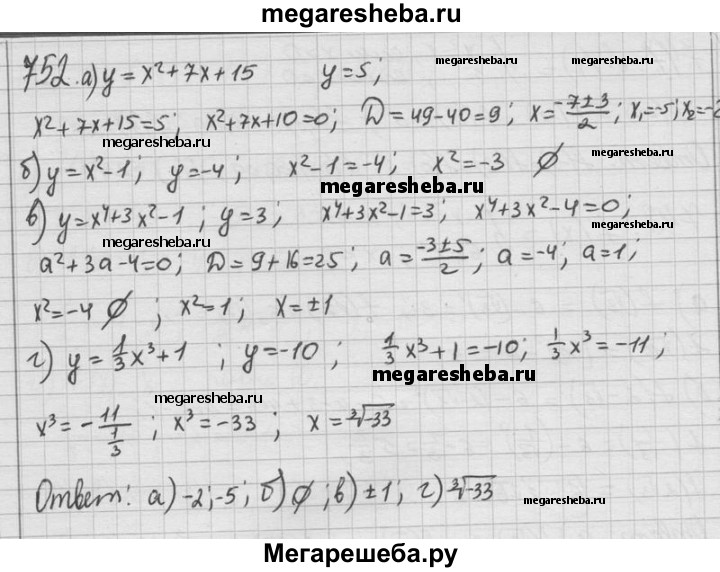 megaresheba.ru
752. а) y = x² + 7x + 15 y = 5; megaresheba.ru
x² + 7x + 15 = 5; x² + 7x + 10 = 0; D = 49 - 40 = 9; x = (-7 ± 3)/2; x₁ = -5; x₂ = -2
б) y = x² - 1; y = -4; x² - 1 = -4; x² = -3 ∅
megaresheba.ru megaresheba.ru
в) y = x⁴ + 3x² - 1; y = 3; x⁴ + 3x² - 1 = 3; x⁴ + 3x² - 4 = 0;
a² + 3a - 4 = 0; D = 9 + 16 = 25; a = (-3 ± 5)/2; a = -4; a = 1;
x² = -4 ∅; x² = 1; x = ±1
megaresheba.ru
г) y = 1/3 x³ + 1; y = -10; 1/3 x³ + 1 = -10; 1/3 x³ = -11;
megaresheba.ru
megaresheba.ru
x³ = - 11/(1/3); x³ = -33; x = ∛-33
Ответ: а) -2; -5; б) ∅; в) ±1; г) ∛-33
megaresheba.ru
Мегарешеба.ру